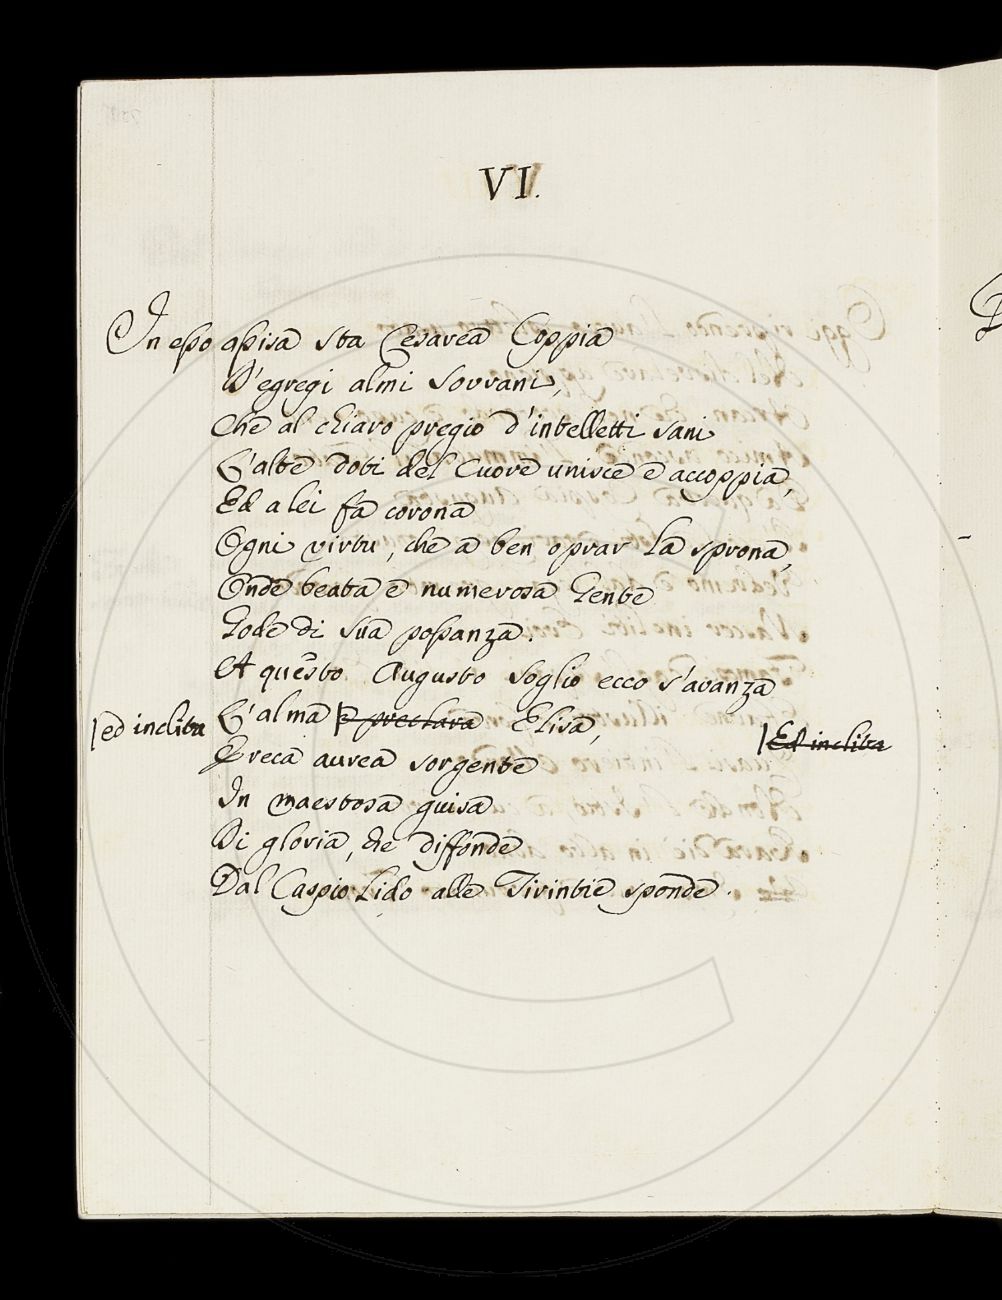 VI.
In esso assisa sta Cesarea Coppia
D'egregi almi Sovrani,
Che al chiaro pregio d'intelletti sani
L'alte doti del Cuore unisce e accoppia,
Ed a lei fa corona
Ogni virtu, che a ben oprar la sprona,
Onde beata e numerosa Gente
Gode di sua possanza.
A questo Augusto Soglio ecco s'avanza
|ed inclita L'alma |e preclara Elisa, |Ed inclita
E reca aurea sorgente
In maestosa guisa
Di gloria, che diffonde
Dal Caspio Lido alle Tirintie sponde.